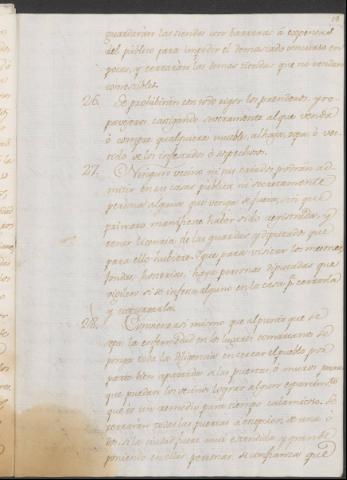 guardarán las tiendas con barreras á expensas
del público para impedir el demasiado concurso en
pocas, y cerrarán las demas tiendas que no vendan
comestibles.
26. Se prohibirán con todo rigor los prenderos, y ro-
pavejeros, castigando severamente al que venda
ó compre qualquiera mueble, alhaja, ropa, ó ves-
tido de los infestados ó sospechosos.
27. Ninguno vecino ni sus criados podrán ad-
mitir en su casa pública ni secretamente
persona alguna que venga de fuera, sin que
primero manifieste haber sido registrada, y
tener licencia de las guardas y diputado que
para ello hubiere. Que para visitar los mesones,
fondas, hosterías, haya personas diputadas que
vigilen si se infesta alguno en la casa p.ª cerrarla
y
28. Convena asi mismo que al punto que se
sepa la enfermedad en los lugares comarcanos se
ponga toda la diligencia en cercar el pueblo por
parte bien apartada a las puertas, ó muros para
que puedan los vecinos lograr algun esparcimiento
que es un remedio para tiempo calamitoso. Se
cerrarán todas las puertas a excepcion de una ó
dos si la ciudad fuere muy extendida y grande
poniendo en ellas personas de confianza que